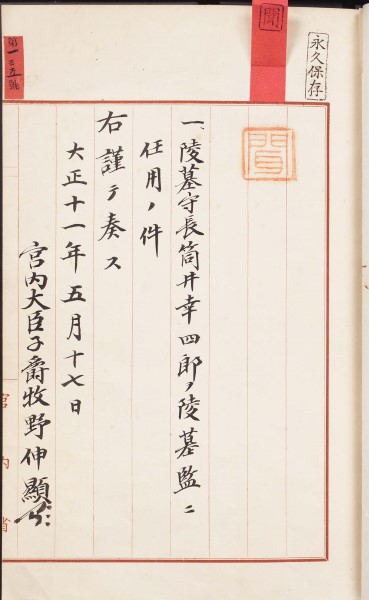 永久保存
聞
第一三五號
一、陵墓守長筒井幸四郎ノ陵墓監ニ
任用ノ件
右謹テ奏ス
大正十一年五月十七日
宮内大臣子爵牧野伸顯
宮内省